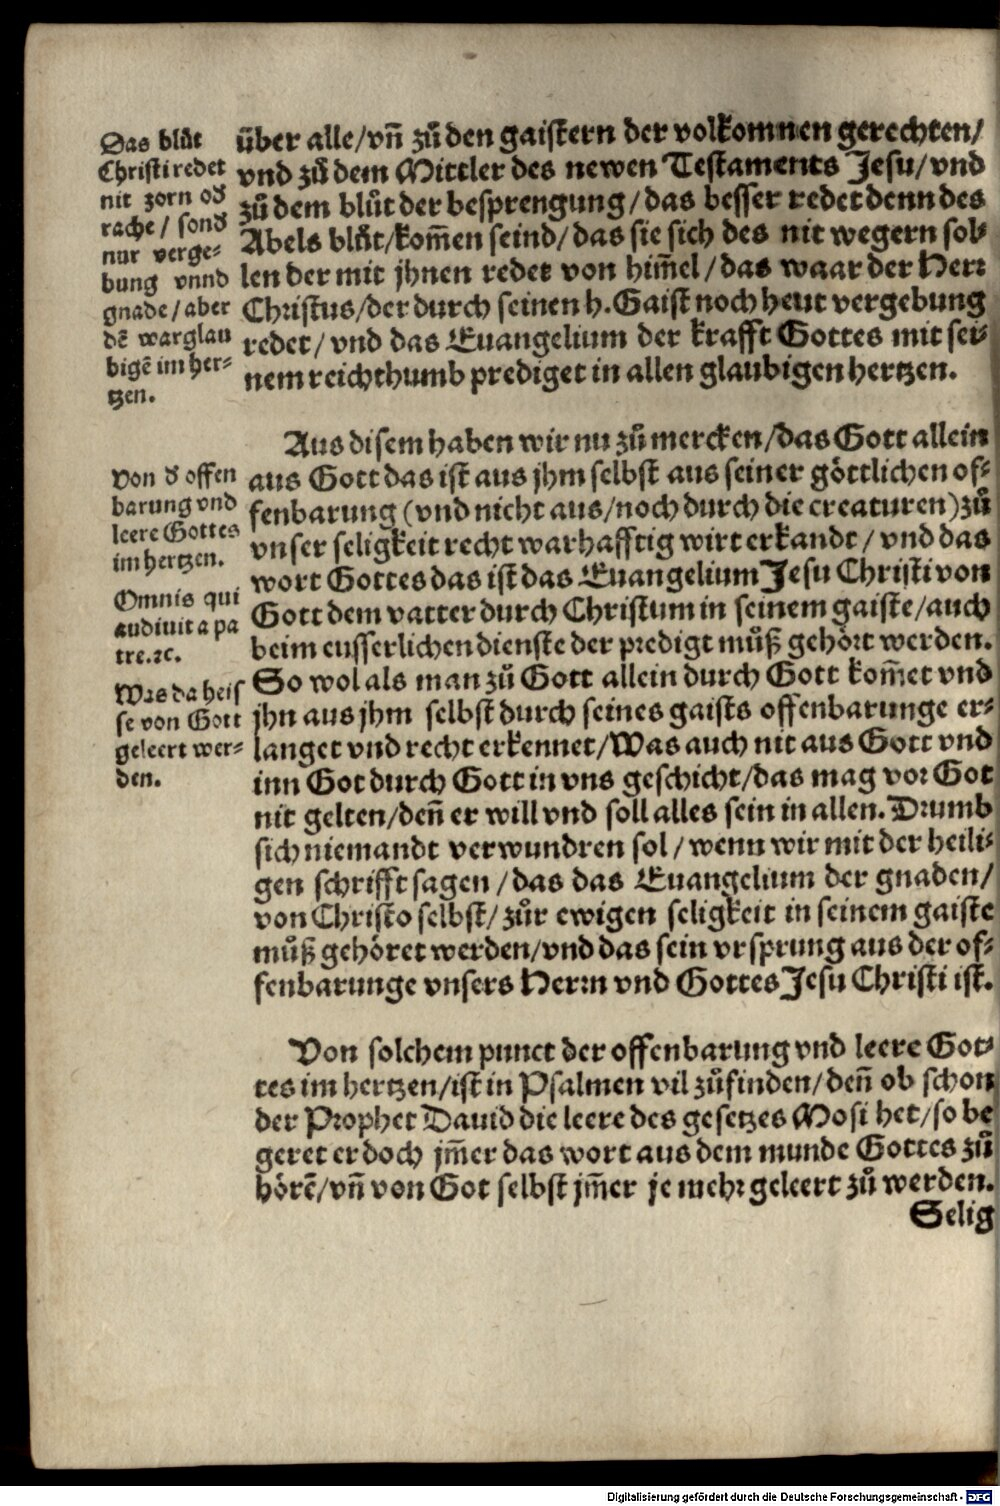 Das blůt
Christi redet
nit zorn od̕
rache / sond̕
nur verge⸗
bung vnnd
gnade / aber
dē warglau
bigē im her⸗
tzen.
über alle/vñ zů den gaistern der volkomnen gerechten/
vnd zů dem Mittler des newen Testaments Jesu/vnd
zů dem blůt der besprengung/das besser redet denn des
Abels blůt/kom̃en seind/das sie sich des nit wegern sol⸗
len der mit jhnen redet von him̃el/das waar der Herr
Christus/der durch seinen h. Gaist noch heut vergebung
redet/vnd das Euangelium der krafft Gottes mit sei⸗
nem reichthumb prediget in allen glaubigen hertzen.
Von d̕ offen
barung vnd
leere Gottes
im hertzen.
Omnis qui
audiuit a pa
tre.ꝛc.
Was da heis
se von Gott
geleert wer⸗
den.
Aus disem haben wir nu zů mercken/das Gott allein
aus Gott das ist aus jhm selbst aus seiner göttlichen of⸗
fenbarung (vnd nicht aus/noch durch die creaturen) zů
vnser seligkeit recht warhafftig wirt erkandt/vnd das
wort Gottes das ist das Euangelium Jesu Christi von
Gott dem vatter durch Christum in seinem gaiste/auch
beim eusserlichen dienste der predigt můß gehört werden.
So wol als man zů Gott allein durch Gott kom̃et vnd
jhn aus jhm selbst durch seines gaists offenbarunge er⸗
langet vnd recht erkennet/Was auch nit aus Gott vnd
inn Got durch Gott in vns geschicht/das mag vor Got
nit gelten/deñ er will vnd soll alles sein in allen. Drumb
sich niemandt verwundren sol/wenn wir mit der heili⸗
gen schrifft sagen/das das Euangelium der gnaden/
von Christo selbst/zůr ewigen seligkeit in seinem gaiste
můß gehöret werden/vnd das sein vrsprung aus der of⸗
fenbarunge vnsers Herrn vnd Gottes Jesu Christi ist.
Von solchem punct der offenbarung vnd leere Got⸗
tes im hertzen/ist in Psalmen vil zůfinden/deñ ob schon
der Prophet Dauid die leere des gesetzes Mosi het/so be
geret er doch jm̃er das wort aus dem munde Gottes zů
hörē/vñ von Got selbst jm̃er je mehr geleert zů werden.
Selig
Digitalisierung gefördert durch die Deutsche Forschungsgemeinschaft - DFG